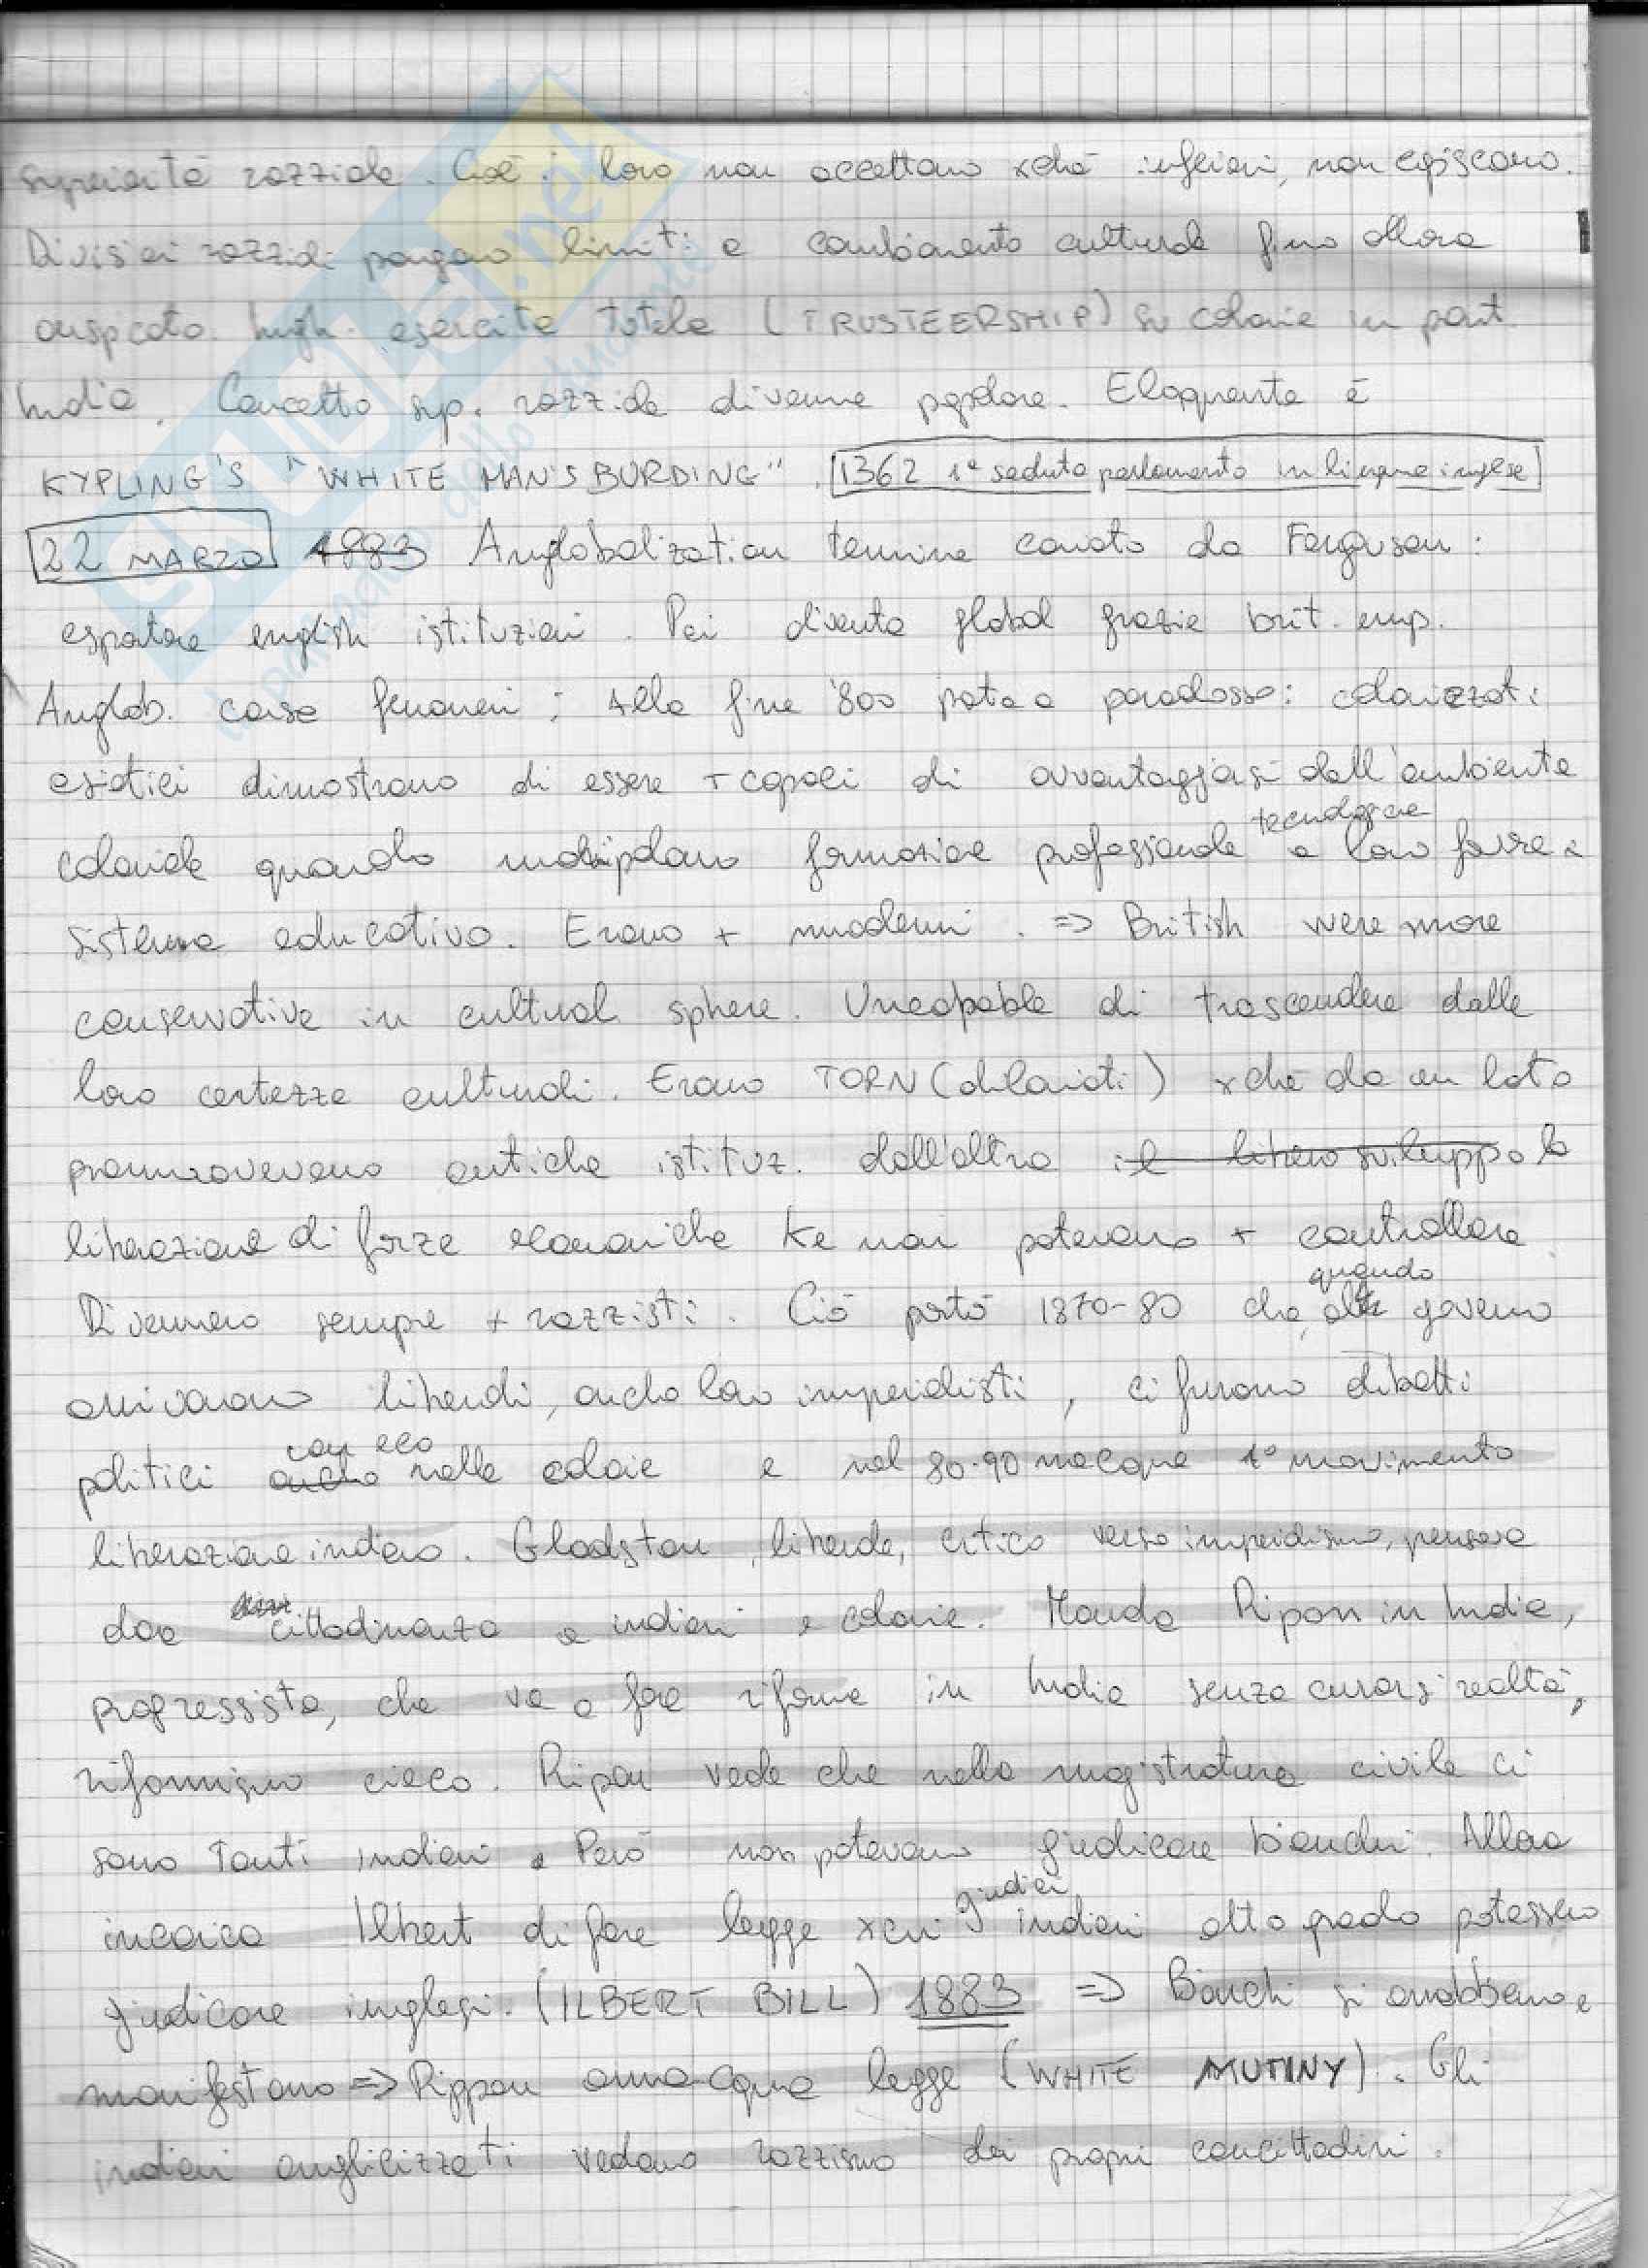 superiorità razziale. Cioè: loro non accettano xché inferiori, non capiscono.
Divisioni razziali pongono limiti a cambiamento culturale fino allora
auspicato. Ingh. esercita totale (TRUSTEERSHIP) su colonie in part.
India. Concetto sup. razziale divenne popolare. Eloquente è
KYPLING'S "WHITE MAN'S BURDING". 1362 1ª seduta parlamento in lingua inglese
22 MARZO 1883 Anglobalization termine coniato da Ferguson:
esportare english istituzioni. Poi diventa global grazie brit. emp.
Anglob. come fenomeni; Alla fine '800 porta a paradosso: colonizzati
asiatici dimostrano di essere + capaci di avvantaggiarsi dall'ambiente
coloniale quando manipolano formazione professionale tecnologie a loro favore e
sistema educativo. Erano + moderni. => British were more
conservative in cultural sphere. Uncapable di trascendere dalle
loro certezze culturali. Erano TORN (dilaniati) xché da un lato
promuovevano antiche istituz. dall'altra il libero sviluppo la
liberazione di forze economiche ke non potevano + controllare.
Divennero sempre + razzisti. Ciò portò 1870-80 che, quando al governo
arrivarono liberali, anche loro imperialisti, ci furono dibatti
politici anche con eco nelle colonie e nel 80-90 nacque 1° movimento
liberazione indiano. Gladston, liberale, critico verso imperialismo, pensava
dare cittadinanza a indiani e colonie. Manda Ripon in India,
progressista, che va a fare riforme in India senza curarsi realtà,
riformismo cieco. Ripon vede che nella magistratura civile ci
sono tanti indiani. Però non potevano giudicare bianchi. Allora
incarica Ilbert di fare legge xcui giudici indiani alto grado potessero
giudicare inglesi. (ILBERT BILL) 1883 => Bianchi si arrabbiano e
manifestano => Rippon annacqua legge (WHITE MUTINY). Gli
indiani anglicizzati vedono razzismo dei propri concittadini.